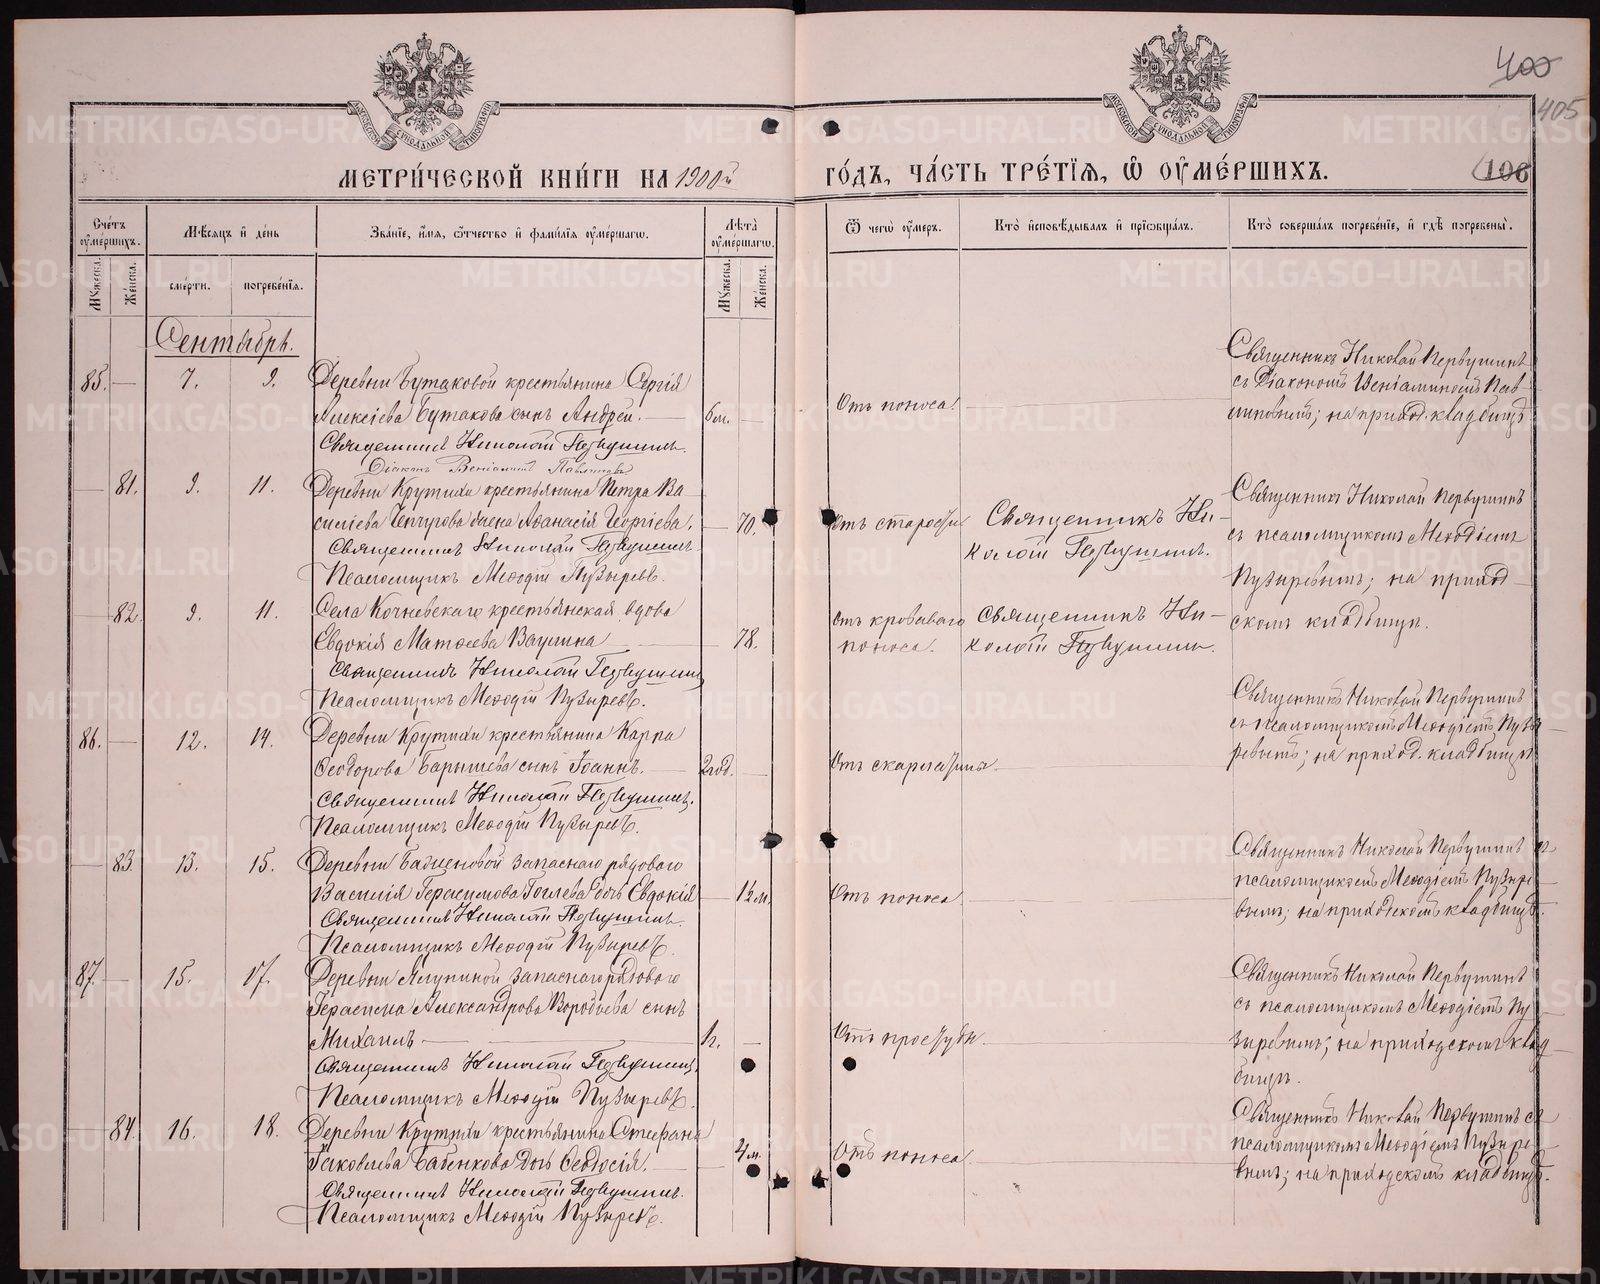 400
405
106
МЕТРИ́ЧЕСКОЙ КНИ́ГИ НА 1900й
ГО́ДЪ, ЧА́СТЬ ТРЕ́ТІЯ, Ѽ ОУ҆МЕ́РШИХЪ.
Сче́тъ оу҆ме́ршихъ.
Мѣ́сяцъ и҆ де́нь
Зва́нїе, и҆́мя, ѻ҆́тчество и҆ фами́лїя оу҆ме́ршагѡ.
Лѣ́та оу҆ме́ршагѡ.
Мꙋ́жеска.
Же́нска.
сме́рти.
погребе́нїя.
Мꙋ́жеска.
Же́нска.
Ѿ чегѡ̀ оу҆́меръ.
Кто̀ и҆сповѣ́дывалъ и҆ прїѡбща́лъ.
Кто̀ соверша́лъ погребе́нїе, и҆ гдѣ̀ погребены̀.
Сентябрь.
85. — 7. 9.
Деревни Бутаковой крестьянина Сергія
Алексіева Бутакова сынъ Андрей. — 6 м. —
Священникъ Николай Первушинъ.
Діаконъ Веніаминъ Павлиновъ
Отъ поноса.
Священникъ Николай Первушинъ
съ Діакономъ Веніаминомъ Пав-
линовымъ; на приход. кладбищѣ
— 81. 9. 11.
Деревни Крутихи крестьянина Петра Ва-
силіева Чепчугова жена Аѳанасія Георгіева. — 70.
Священникъ Николай Первушинъ
Псаломщикъ Меѳодій Пузыревъ.
Отъ старости
Священникъ Ни-
колай Первушинъ.
Священникъ Николай Первушинъ
съ псаломщикомъ Меѳодіемъ
Пузыревымъ; на приход-
скомъ кладбищѣ.
— 82. 9. 11.
Села Кочневскаго крестьянская вдова
Евдокія Матѳеева Ваулина — 78.
Священникъ Николай Первушинъ
Псаломщикъ Меѳодій Пузыревъ.
Отъ кроваваго
поноса.
Священникъ Ни-
колай Первушинъ.
86. — 12. 14.
Деревни Крутихи крестьянина Карпа
Ѳеодорова Барышева сынъ Іоаннъ. — 2 год. —
Священникъ Николай Первушинъ.
Псаломщикъ Меѳодій Пузыревъ.
Отъ скарлатины.
Священникъ Николай Первушинъ
съ псаломщикомъ Меѳодіемъ Пузы-
ревымъ; на приход. кладбищѣ
— 83. 13. 15.
Деревни Баженовой запаснаго рядоваго
Василія Герасимова дочь Евдокія — 1½ м.
Священникъ Николай Первушинъ.
Псаломщикъ Меѳодій Пузыревъ.
Отъ поноса.
Священникъ Николай Первушинъ съ
псаломщикомъ Меѳодіемъ Пузыре-
вымъ; на приходскомъ кладбищѣ.
87. — 15. 17.
Деревни Ялуниной запаснаго рядоваго
Герасима Александрова Воробьева сынъ
Михаилъ — 1 г. —
Священникъ Николай Первушинъ.
Псаломщикъ Меѳодій Пузыревъ.
Отъ простуды.
Священникъ Николай Первушинъ
съ псаломщикомъ Меѳодіемъ Пу-
зыревымъ; на приходскомъ клад-
бищѣ.
— 84. 16. 18.
Деревни Крутихи крестьянина Стефана
Іаковлева Бабенкова дочь Ѳеодосія. — 4 м.
Священникъ Николай Первушинъ.
Псаломщикъ Меѳодій Пузыревъ.
Отъ поноса.
Священникъ Николай Первушинъ съ
псаломщикомъ Меѳодіемъ Пузыре-
вымъ; на приходскомъ кладбищѣ.
METRIKI.GASO-URAL.RU